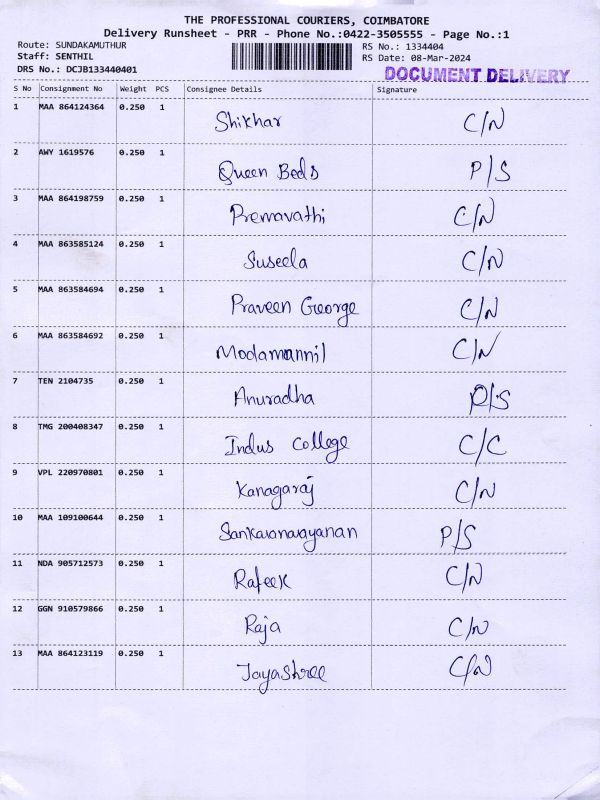 THE PROFESSIONAL COURIERS, COIMBATORE
Delivery Runsheet - PRR - Phone No.:0422-3505555 - Page No.:1
Route: SUNDAKAMUTHUR RS No.: 1334404
Staff: SENTHIL RS Date: 08-Mar-2024
DRS No.: DCJB133440401 DOCUMENT DELIVERY
S No Consignment No Weight PCS Consignee Details Signature
1 MAA 864124364 0.250 1 Shikhar C/N
2 AWY 1619576 0.250 1 Queen Beds P/S
3 MAA 864198759 0.250 1 Premavathi C/N
4 MAA 863585124 0.250 1 Suseela C/N
5 MAA 863584694 0.250 1 Praveen George C/N
6 MAA 863584692 0.250 1 Modamannil C/N
7 TEN 2104735 0.250 1 Anuradha P/S
8 TMG 200408347 0.250 1 Indus College C/C
9 VPL 220970801 0.250 1 Kanagaraj C/N
10 MAA 109100644 0.250 1 Sankaranarayanan P/S
11 NDA 905712573 0.250 1 Rafeek C/N
12 GGN 910579866 0.250 1 Raja C/N
13 MAA 864123119 0.250 1 Jayashree C/N